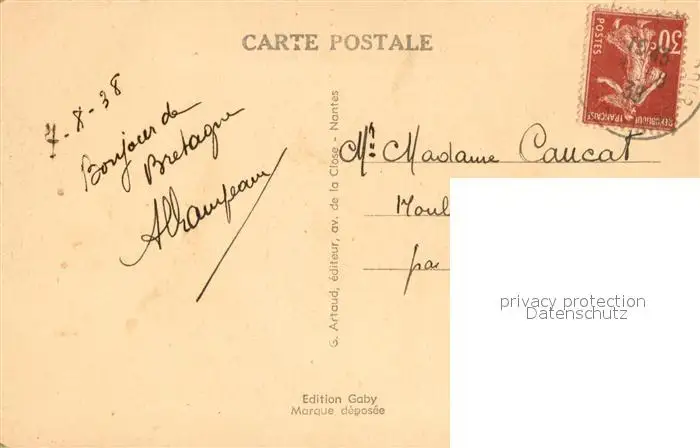 CARTE POSTALE
7-8-38
Bonjour de
Bretagne
G. Artaud, éditeur, av. de la Close - Nantes
POSTES
30c
REPUBLIQUE FRANÇAISE
Mr Madame Caucat
Moul
par
privacy protection
Datenschutz
Edition Gaby
Marque déposée